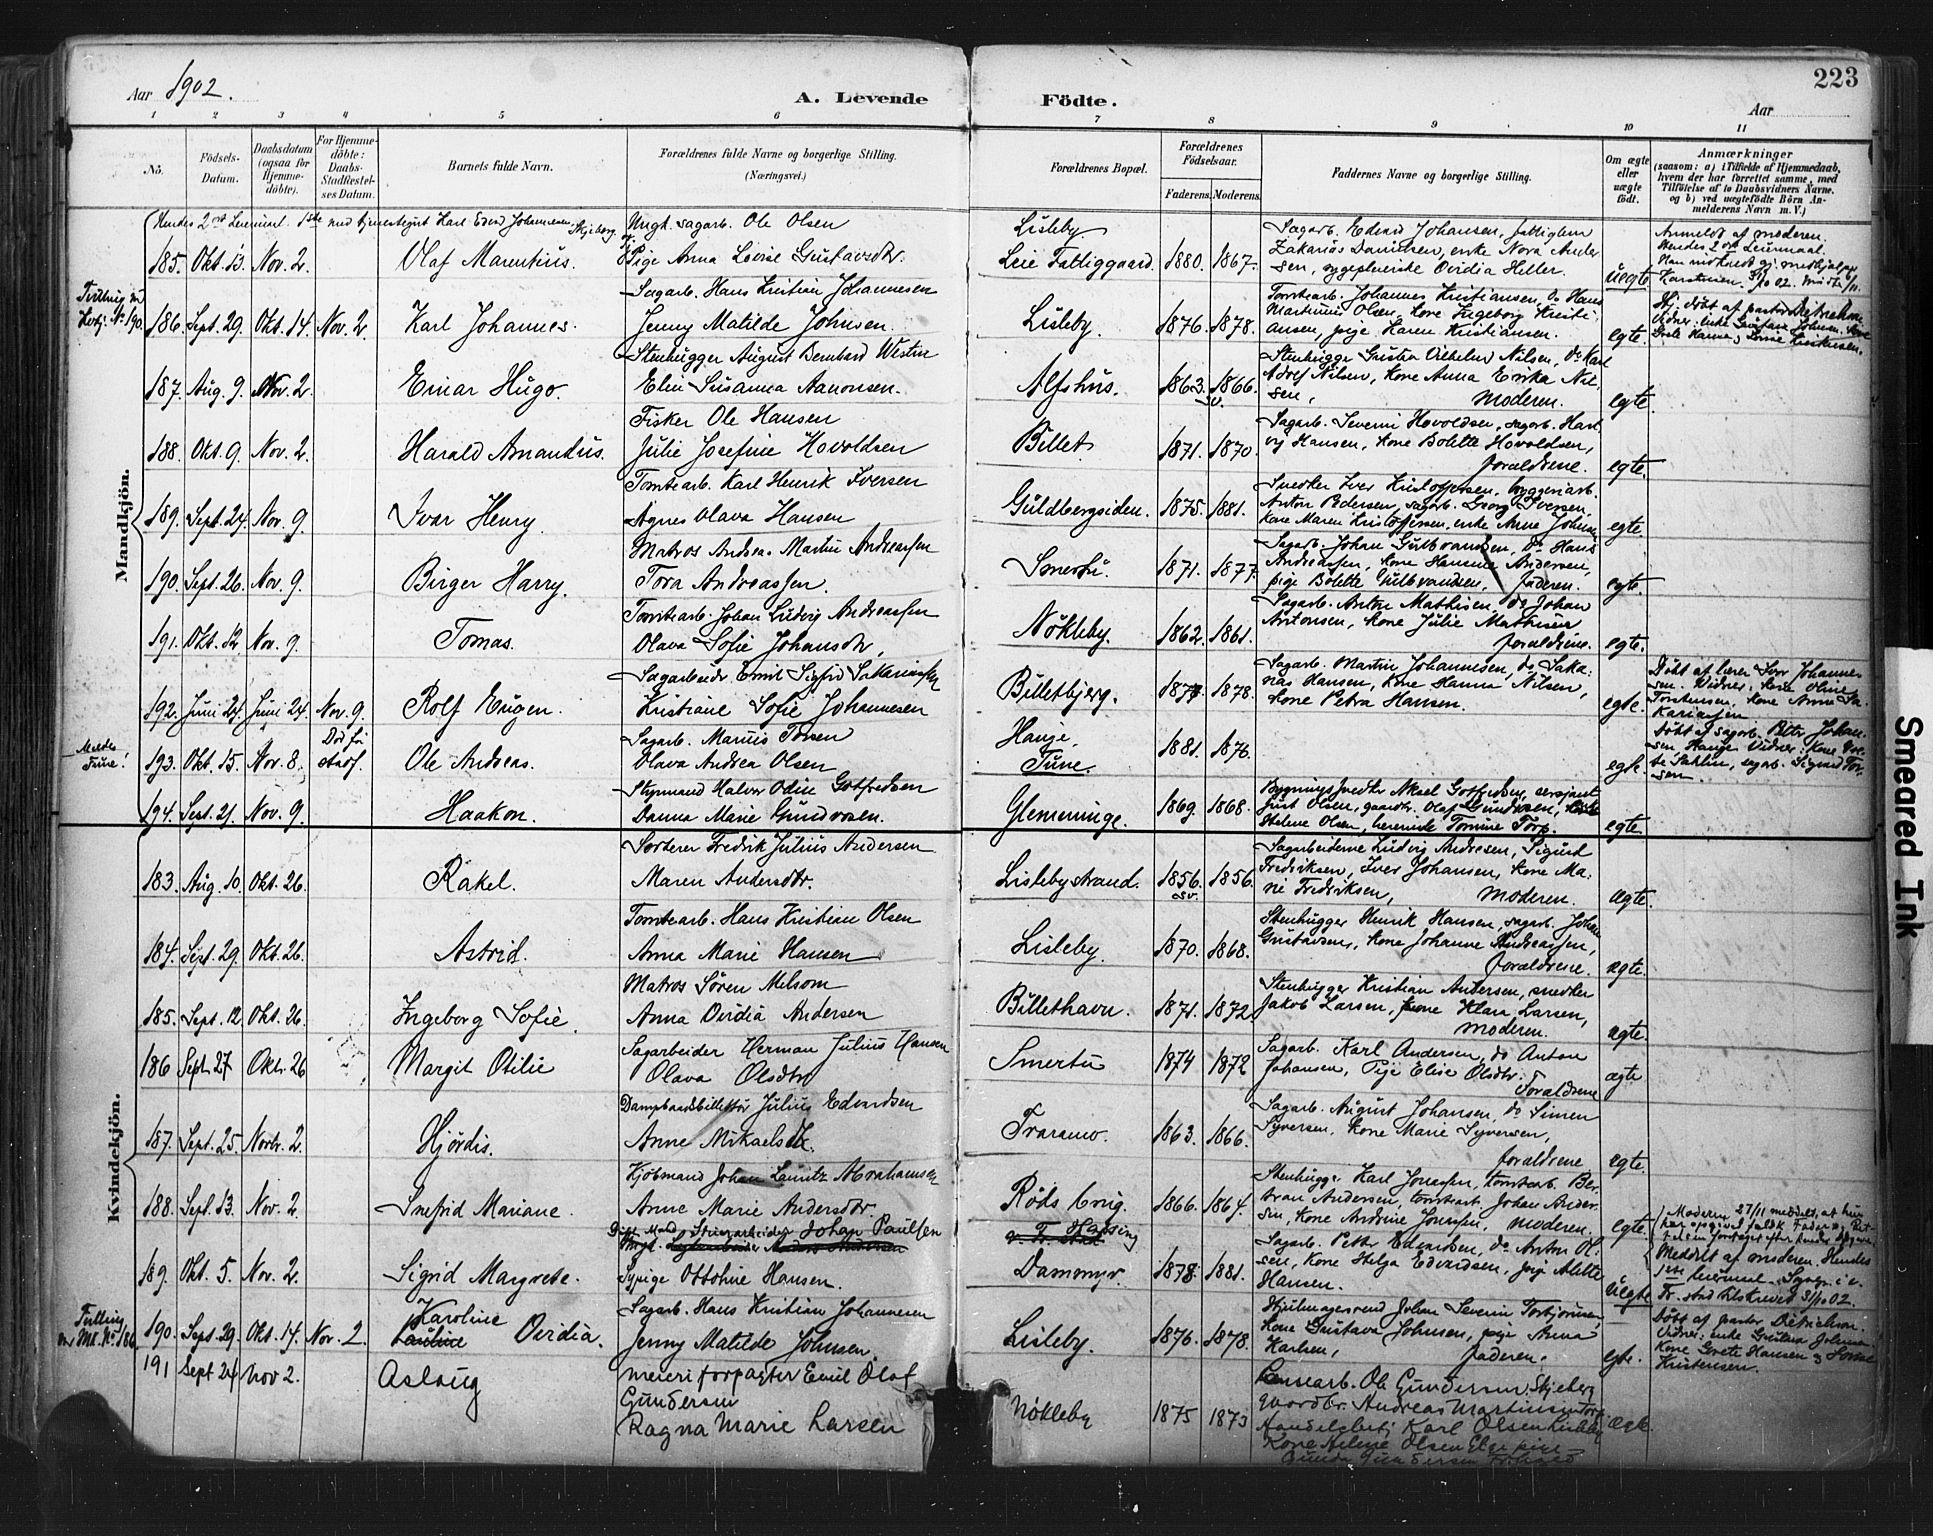 223
Aar 1902.
A. Levende Födte.
Aar
1 2 3 4 5 6 7 8 9 10 11
No.
Födsels-
Datum.
Daabsdatum
(ogsaa for
Hjemme-
döbte).
For Hjemme-
döbte:
Daabs-
Stadfæstel-
ses Datum.
Barnets fulde Navn.
Forældrenes fulde Navne og borgerlige Stilling.
(Næringsvei.)
Forældrenes Bopæl.
Forældrenes
Födselsaar.
Faderens. Moderens.
Faddernes Navne og borgerlige Stilling.
Om ægte
eller
uægte
födt.
Anmærkninger
(saasom: a) i Tilfælde af Hjemmedaab,
hvem der har forrettet samme, med
Tilföielse af to Daabsvidners Navne,
og b) ved uægtefödte Börn An-
melderens Navn m. V.)
Mandkjön.
Ungk. sagarb. Ole Olsen
Lisleby.
185. Okt. 13. Nov. 2. Olaf Marentius. Pige Anna Lovise Gustavsdtr. Leie Fattiggaard. 1880. 1867. uegte
Sagarb. Edvard Johansen, fattiglem
Zakarias Danielsen, enke Nora Ander
sen, sygepleierske Ovidia Heller.
Anmeldt af moderen.
Hendes 2det Leiermaal.
Tvilling m
Kvkj. No 190.
Sagarb. Hans Kristian Johannesen
186. Sept. 29. Okt. 14. Nov. 2. Karl Johannes. Jenny Matilde Johnsen. Lisleby. 1876. 1878. egte.
Tomtearb. Johannes Kristiansen, do Hans
Martinius Olsen, kone Ingeborg Kristi
ansen, pige Karen Kristiansen.
Stenhugger August Bernhard Westin
187. Aug. 9. Nov. 2. Einar Hugo. Elen Susanna Aanonsen. Alfshus. 1863. sv. 1866. egte.
Stenhugge Gustav Vilhelm Nilsen, do Karl
Adolf Nilsen, kone Anna Erika Nil
sen, Moderen.
Fisker Ole Hansen
188. Okt. 9. Nov. 2. Harald Amandus. Julie Josefine Hovoldsen Billet 1871. 1870. egte.
Sagarb. Severin Hovoldsen, sagarb. Hart
vig Hansen, kone Bolette Hovoldsen,
foraldrene.
Tomtearb. Karl Henrik Iversen
189. Sept. 24. Nov. 9. Ivar Henry. Agnes Olava Hansen Guldbergsiden. 1875. 1881. egte.
Snedker Iver Kristoffersen, byggeriarb.
Anton Pedersen, sagarb. Georg Iversen,
kone Maren Kristoffersen, enke Anne Johnsen
Matros Andreas Martin Andreassen
190. Sept. 26. Nov. 9. Birger Harry. Tora Andreassen. Smertu. 1871. 1877. egte.
Sagarb. Johan Gulbrandsen, do Hans
Andreassen, kone Hansine Andersen,
pige Bolette Gulbrandsen, faderen.
Tomtearb. Johan Ludvig Andreassen
191. Okt. 12. Nov. 9. Tomas. Olava Sofie Johansdtr, Nökleby. 1862. 1861. egte.
Sagarb. Anton Mathisen, do Johan
Antonsen, kone Julie Mathisen
foraldrene.
Sagarbeider Emil Sigfrid Sakariassen
192. Juni 24. Juni 24. Nov. 9. Rolf Eugen. Kristiane Sofie Johannesen Billetbjerg. 1878. egte.
Sagarb. Martin Johannesen, do Saka-
rias Hansen, kone Hanna Nilsen,
kone Petra Hansen.
Döbt af lærer Iver Johanne
sen. Vidner: kone Oline
Torstensen, kone Anna Sa-
kariassen
Meldes
Tune!
Sagarb. Marius Torsen Hauge,
193. Okt. 15. Nov. 8. Död för stadf. Ole Andreas. Olava Andrea Olsen Tune. 1881. 1876. egte.
Döbt af sagarb. Peter Johan-
sen, Hauge. Vidner: kone
Styrmand Halvor Odin Gotfredsen
194. Sept. 21. Nov. 9. Haakon. Danna Marie Gundersen. Glemminge. 1869. 1868. egte.
Bygningssnedker Mikael Gotfredsen, sersjant
Just Olsen, gaardbr. Olaf Gundersen,
Helene Olsen, lærerinde Tomine Torp.
Kvindekjön.
Sorterer Fredrik Julius Andersen
183. Aug. 10. Okt. 26. Rakel. Maren Andersdtr. Lislebystrand. 1856. sv. 1856. ægte.
Sagarbeiderne Ludvig Andresen, Sigurd
Fredriksen, Iver Johansen, kone Ma-
rie Fredriksen, Moderen.
Tomtearb. Hans Kristian Olsen
184. Sept. 29. Okt. 26. Astrid. Anna Marie Hansen Lisleby. 1870. 1868. ægte.
Stenhugger Henrik Hansen, sagarb. Johan
Gustavsen, kone Johanne Andreassen,
foraldrene.
Matros Sören Melsom
185. Sept. 12. Okt. 26. Ingeborg Sofie. Anna Ovidia Andersen Billethavn. 1871. 1872. ægte.
Stenhugger Kristian Andersen, snedker
Jakob Larsen, kone Klara Larsen,
Moderen.
Sagarbeider Herman Julius Hansen
186 Sept. 27 Okt. 26 Margit Otilie Olava Olsdtr Smertu 1874 1872 ægte
Sagarb. Karl Andersen, do Anton
Johansen, Pige Elise Olsdtr.
Foraldrene
Dampbaadsbillettör Julius Edvardsen
187. Sept. 25. Novbr. 2. Hjördis. Anne Mikaelsdtr. Traramo. 1863. 1866. egte.
Sagarb. August Johansen, do Simen
Syversen, kone Marie Syversen,
foraldrene
Kjöbmand Johan Lauritz Abrahamsen
188. Sept. 13. Nov. 2. Snefrid Mariane. Anne Marie Andersdtr. Röds brug. 1866. 1864. egte.
Stenhugger Karl Jonassen, tomtearb. Ber-
tran Andersen, tomtearb. Johan Ander-
sen, kone Andrine Jonassen, moderen.
Gift Mand, Stuerarbeider Johan Paulsen
189. Okt. 5. Nov. 2. Sigrid Margrete. Sypige Ottohine Hansen. Dammyr. 1878. 1881. uegte
Sagarb. Petter Edvardsen, do Anton Ol-
sen, kone Helga Edvardsen, pige Alette
Hansen.
Moderen 27/11 meddelt, at hun
har opgivet falsk Fader
Meddelt af moderen. Hendes
1ste leiermaal.
Fr.stad tilskrevet 31/10 02.
Tvilling
m. Mk. No 186
Sagarb. Hans Kristian Johannesen
190. Sept. 29. Okt. 14. Nov. 2. Karoline Pauline Ovidia. Jenny Matilde Johnsen. Lisleby. 1876. 1878. egte.
Hjulmagersvend Johan Severin Torbjörnsen,
kone Gustava Johnsen, pige Anna
Karlsen, faderen.
Döbt af pastor Dietrichson.
Vidner: enke Gustava Johnsen
Kone Grete Hansen og Lovise
Kristensen.
191 Sept 24 Nov 2. Aslaug Meieriforpagter Emil Olaf
Gundersen
Ragna Marie Larsen Nökleby 1875 1873 ægte
Ole Gundersen, Skjeberg
Gaardbr. Andreas Martinsen Torp
Handelsbetj. Karl Olsen Lisleby
Kone Helene Olsen